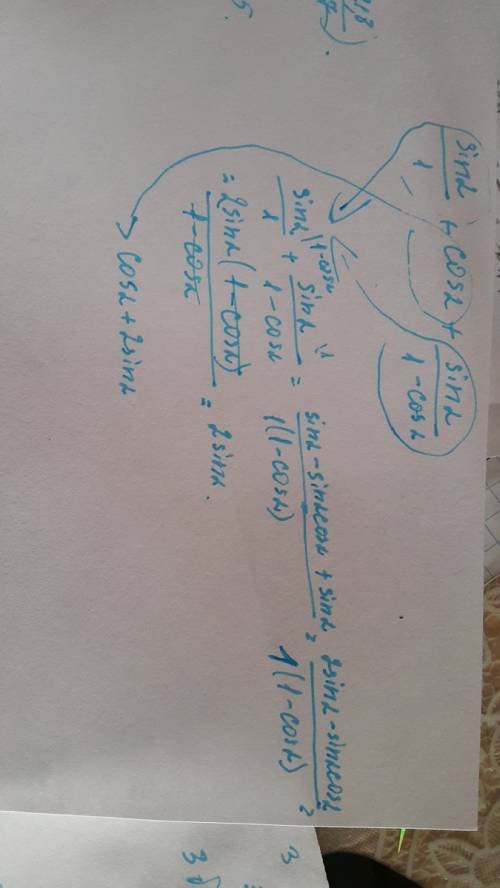 sinα/1 + cosα + sinα/1-cosα
sinα/1 |1-cosα + sinα/1-cosα |1 = sinα-sinαcosα+sinα/1(1-cosα) = 2sinα-sinαcosα/1(1-cosα) =
= 2sinα(1-cosα)/1-cosα = 2sinα.
cosα+2sinα
3
3